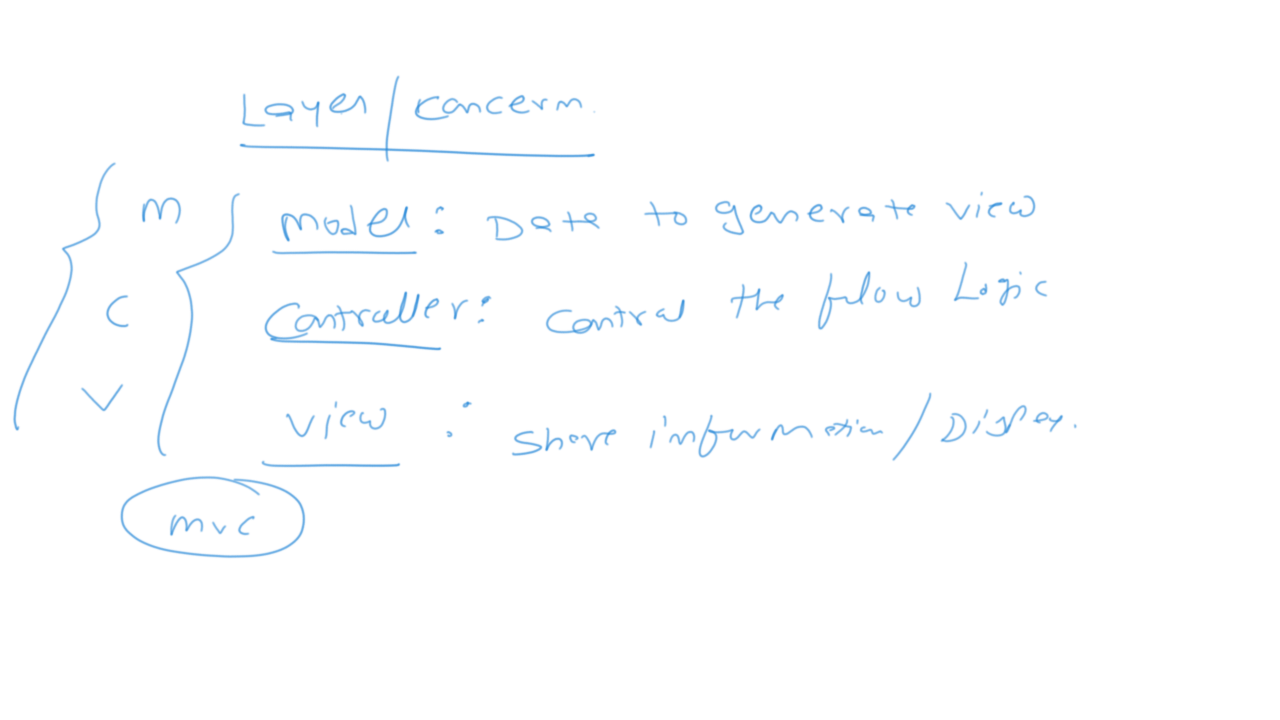 Layer / Concern.
M
Model : Data to generate view
C
Controller : Control the flow Logic
V
View : Share information / Display.
MVC